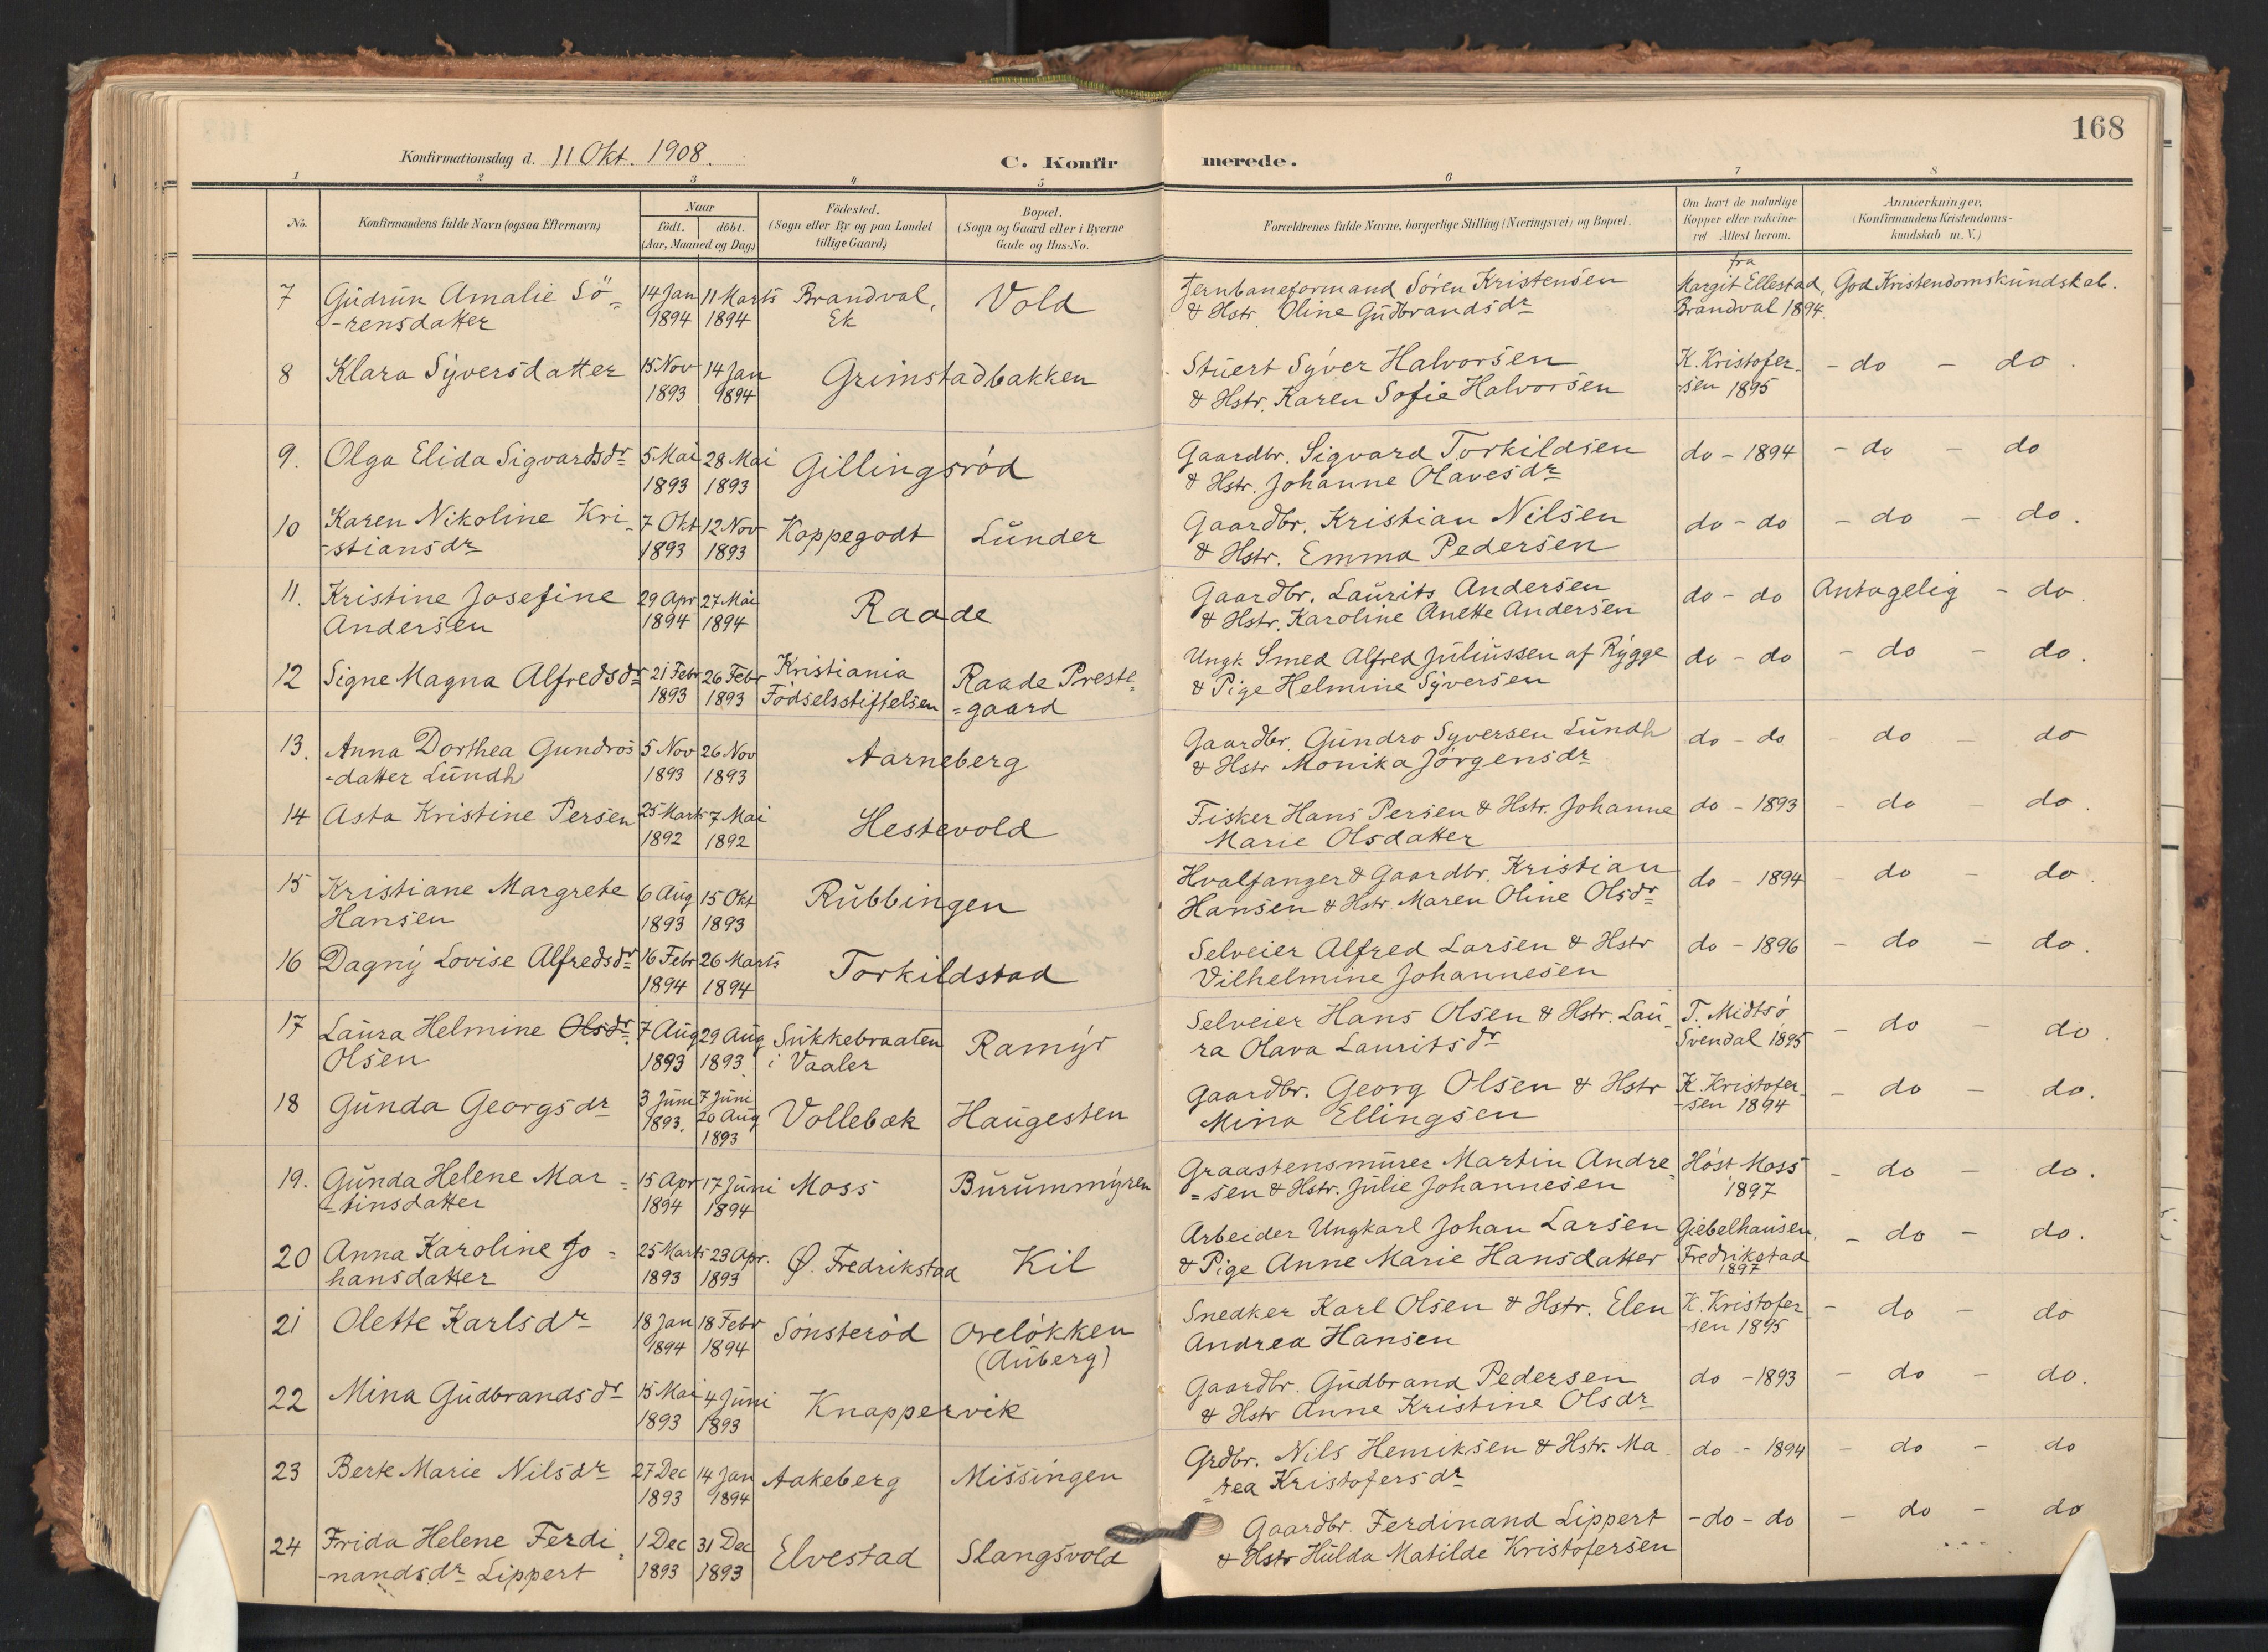 168
Konfirmationsdag d. 11 Okt. 1908.
C. Konfirmerede.
1 2 3 4 5 6 7 8
No.
Konfirmandens fulde Navn (ogsaa Efternavn)
Naar
födt. döbt.
(Aar, Maaned og Dag)
Födested.
(Sogn eller By og paa Landet
tillige Gaard)
Bopæl.
(Sogn og Gaard eller i Byerne
Gade og Hus-No.
Forældrenes fulde Navne, borgerlige Stilling (Næringsvei) og Bopæl.
Om havt de naturlige
Kopper eller vakcine-
ret Attest herom.
Anmærkninger,
(Konfirmandens Kristendoms-
kundskab m. V.)
7 Gudrun Amalie Sö= 14 Jan 11 Marts Brandval, Vold Jernbaneformand Sören Kristensen fra Margit Ellestad, God Kristendomskundskab.
-rensdatter 1894 1894 Ek & Hstr. Oline Gudbrandsdr Brandval 1894.
8 Klara Syversdatter 15 Nov 14 Jan Grimstadbakken Stuert Syver Halvorsen K. Kristofer- - do - do.
1893 1894 & Hstr. Karen Sofie Halvorsen -sen 1895
9. Olga Elida Sigvardsdr 5 Mai 28 Mai Gillingsröd Gaardbr. Sigvard Torkildsen do - 1894 - do - do
1893 1893 & Hstr. Johanne Olavesdr
10 Karen Nikoline Kri- 7 Okt 12 Nov Koppegodt Lunder Gaardbr. Kristian Nilsen do - do - do - do.
-stiansdr 1893 1893 & Hstr. Emma Pedersen
11. Kristine Josefine 29 Apr 27 Mai Raade Gaardbr. Laurits Andersen do - do Antagelig - do.
Andersen 1894 1894 & Hstr. Karoline Anette Andersen
12 Signe Magna Alfredsdr 21 Febr 26 Febr Kristiania Raade Preste= Ungk. Smed Alfred Juliussen af Rygge do - do - do - do.
1893 1893 Födselsstiftelsen =gaard & Pige Helmine Syversen
13. Anna Dorthea Gundros 5 Nov 26 Nov Aarneberg Gaardbr. Gundro Syversen Lundh do - do - do - do
-datter Lundh 1893 1893 & Hstr Monika Jörgensdr
14 Asta Kristine Persen 25 Marts 7 Mai Hestevold Fisker Hans Persen & Hstr. Johanne do - 1893 - do - do.
1892 1892 Marie Olsdatter
15 Kristiane Margrete 6 Aug 15 Okt Rubbingen Hvalfanger & Gaardbr. Kristian do - 1894 - do - do.
Hansen 1893 1893 Hansen & Hstr. Maren Oline Olsdr
16 Dagny Lovise Alfredsdr 16 Febr 26 Marts Torkildstad Selveier Alfred Larsen & Hstr do - 1896 - do - do.
1894 1894 Vilhelmine Johannesen
17 Laura Helmine Olsdr. 7 Aug 29 Aug Sukkebraaten Ramyr Selveier Hans Olsen & Hstr. Lau- T. Midtsö - do - do.
Olsen 1893 1893. i Vaaler ra Olava Lauritsdr Svendal 1895
18 Gunda Georgsdr 3 Juni 7 Juni Vollebæk Haugesten Gaardbr. Georg Olsen & Hstr K. Kristofer- - do - do.
1893. 20 Aug Mina Ellingsen -sen 1894
1893
19. Gunda Helene Mar- 15 Apr 17 Juni Moss Burummyren Graastensmurer Martin Andre= Höst Moss - do - do.
-tinsdatter 1894 1894 =sen & Hstr. Julie Johannesen 1897
20 Anna Karoline Jo= 25 Marts 23 Apr. Ø. Fredrikstad Kil Arbeider Ungkarl Johan Larsen Giebelhausen, - do - do.
hansdatter 1893 1893 & Pige Anne Marie Hansdatter Fredrikstad
1897
21 Olette Karlsdr 18 Jan 18 Febr Sönsteröd Ovelökken Snedker Karl Olsen & Hstr. Elen K. Kristofer- - do - do
1894 1894 (Auberg) Andrea Hansen -sen 1895
22 Mina Gudbrandsdr 15 Mai 4 Juni Knappervik Gaardbr. Gudbrand Pedersen do - 1893 - do - do.
1893 1893 & Hstr Anne Kristine Olsdr
23 Berte Marie Nilsdr 27 Dec 14 Jan Aakeberg Missingen Grdbr. Nils Henriksen & Hstr. Ma- do - 1894 - do - do
1893 1894 =tea Kristofersdr
24 Frida Helene Ferdi= 1 Dec 31 Dec Elvestad Slangsvold Gaardbr. Ferdinand Lippert - do - do - do - do
-nandsdr Lippert 1893 1893 & Hstr Hulda Matilde Kristofersen